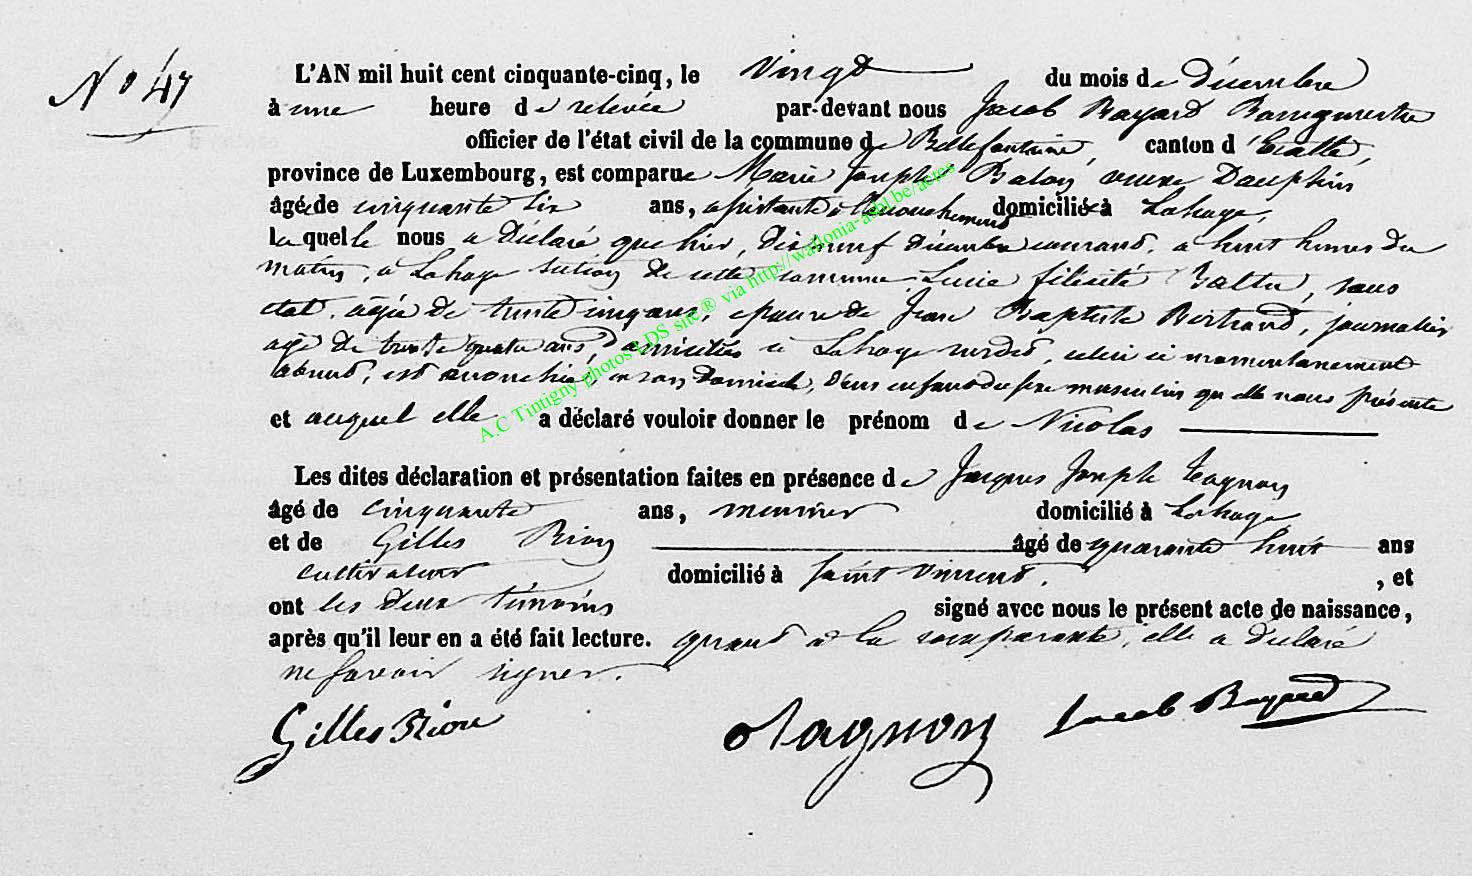 No 47
L'AN mil huit cent cinquante-cinq, le vingt du mois de décembre
à une heure de relevée par-devant nous Jacob Bayard Bourgmestre
officier de l'état civil de la commune de Bellefontaine, canton d'Etalle,
province de Luxembourg, est comparue Marie Joseph veuve Dauphin
âgée de cinquante six ans, assistante à l'accouchement domiciliée à Lahage,
laquelle nous a déclaré que hier, dix neuf décembre courant, à huit heures du
matin, à Lahage section de cette commune, Lucie félicité, sans
état, agée de trente cinq ans, épouse de Jean Baptiste Bertrand, journalier
agé de trente quatre ans, domiciliés à Lahage susdit, celui ci momentanement
absent, est accouchée, en son domicile, d'un enfant du sexe masculin qu'elle nous présente
et auquel elle a déclaré vouloir donner le prénom de Nicolas
Les dites déclaration et présentation faites en présence de Jacques Joseph Tagnon
âgé de cinquante ans, meunier domicilié à Lahage
et de Gilles Rion âgé de quarante huit ans
cultivateur domicilié à Saint Vincent. , et
ont les deux témoins signé avec nous le présent acte de naissance,
après qu'il leur en a été fait lecture. quant à la comparante, elle a déclaré
ne savoir signer.
Gilles Rion Tagnon Jacob Bayard
A.C Tintigny photos LDS site ® via http://wallonia-asbl.be/actes